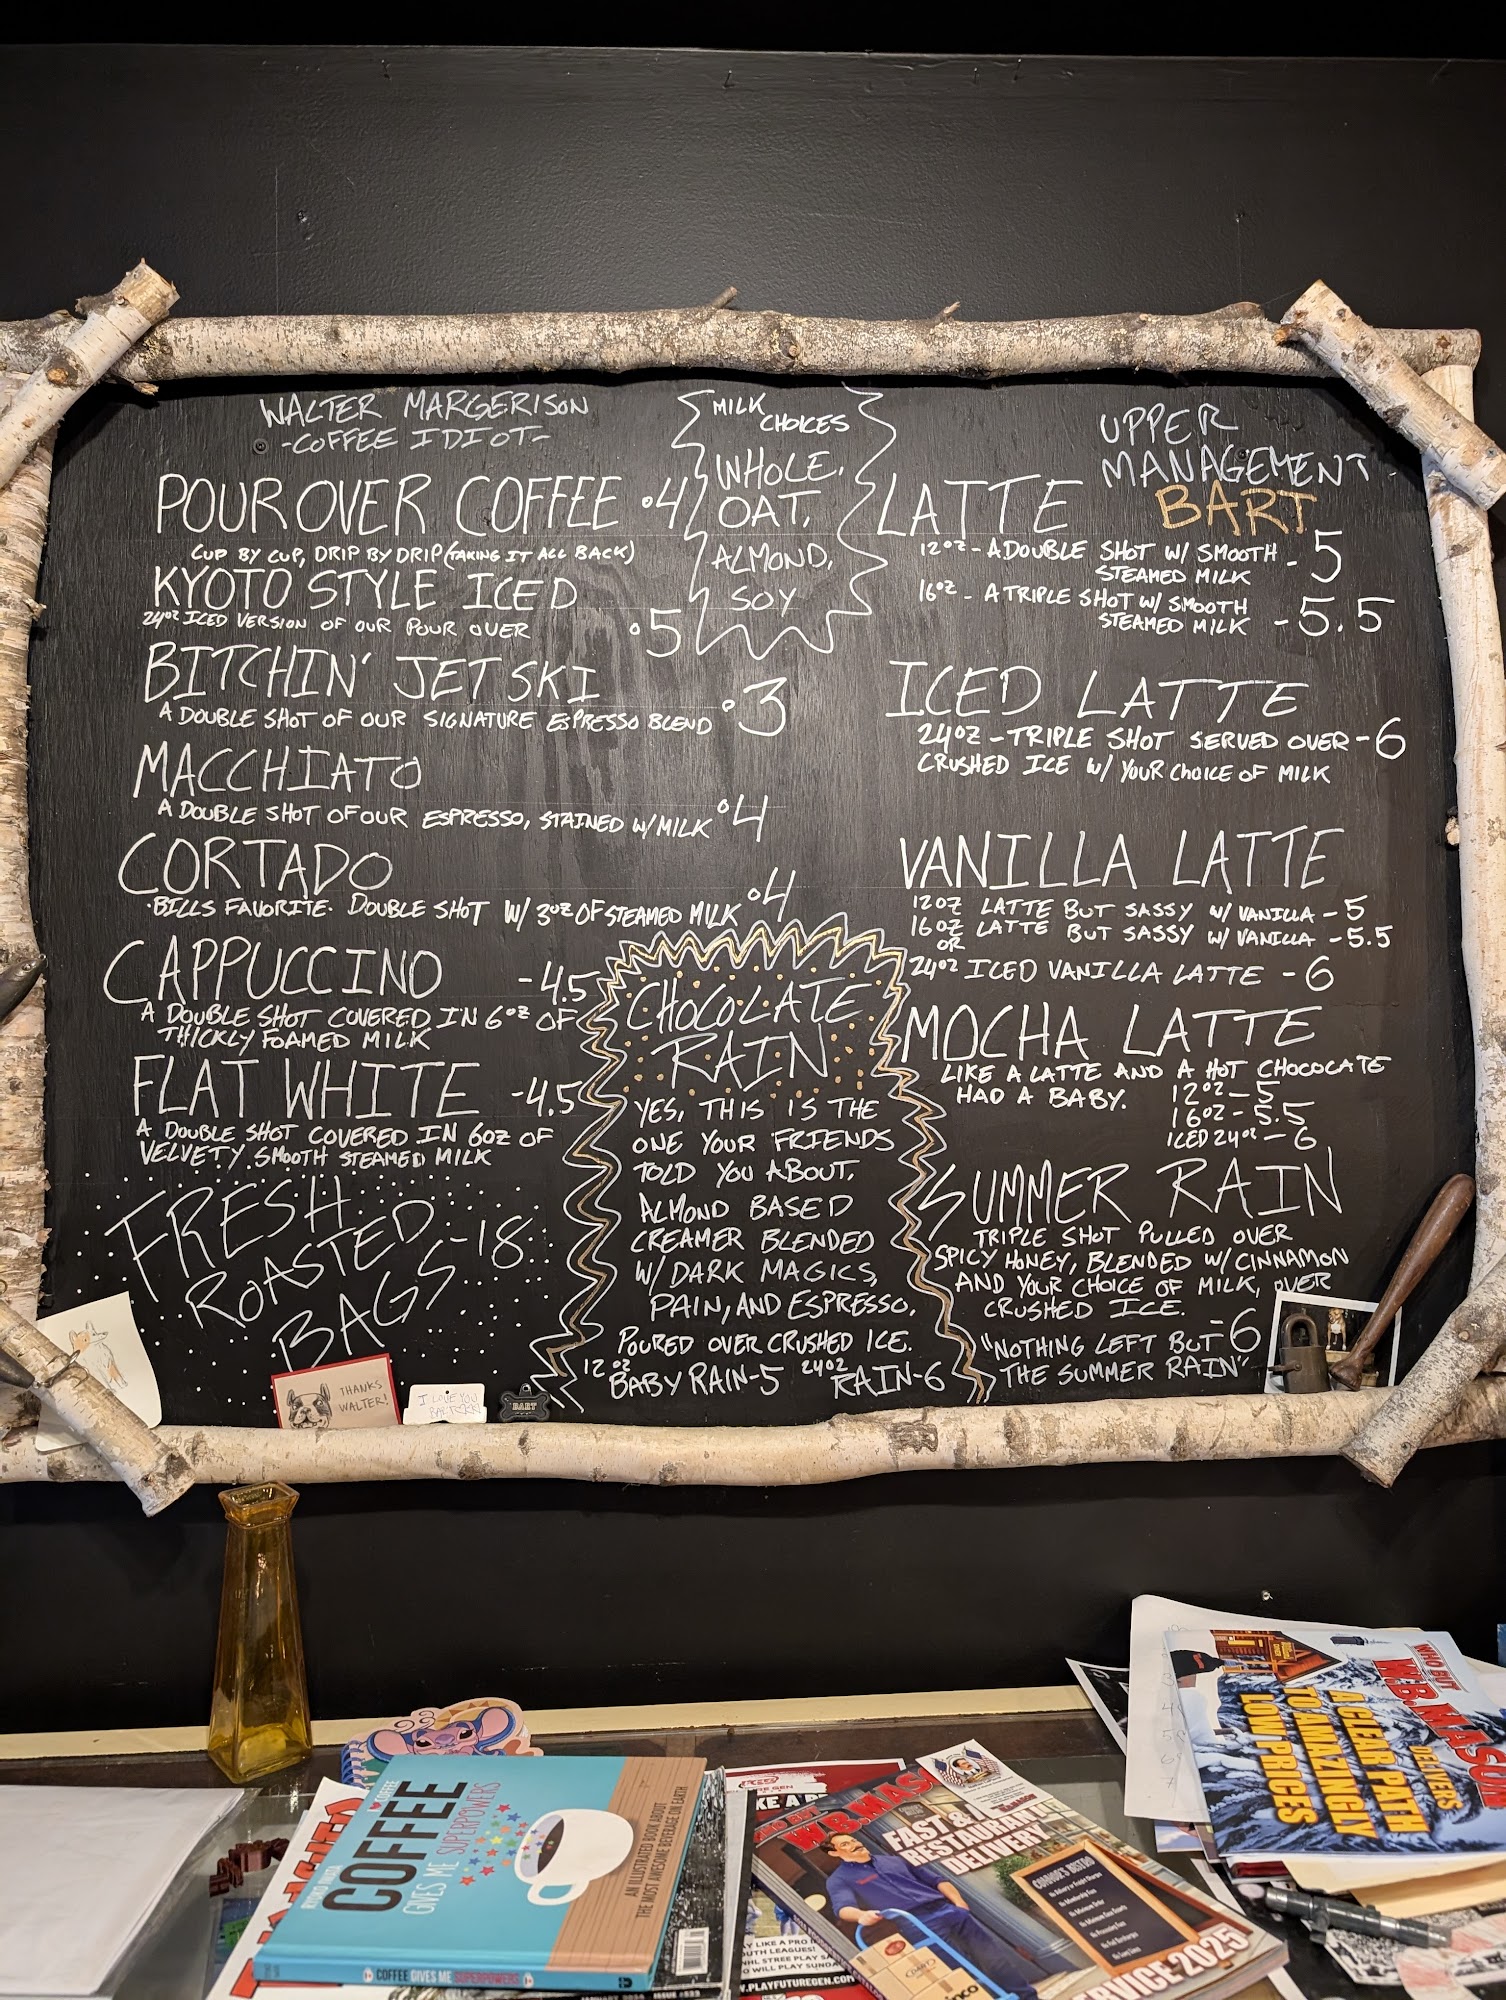 WALTER MARGERISON
-COFFEE IDIOT-
POUR OVER COFFEE 4
CUP BY CUP, DRIP BY DRIP (TAKING IT ALL BACK)
KYOTO STYLE ICED
24OZ ICED VERSION OF OUR POUR OVER 5
BITCHIN' JET SKI
A DOUBLE SHOT OF OUR SIGNATURE ESPRESSO BLEND 3
MACCHIATO
A DOUBLE SHOT OF OUR ESPRESSO, STAINED W/ MILK 4
CORTADO
·BILLS FAVORITE· DOUBLE SHOT W/ 3OZ OF STEAMED MILK 4
CAPPUCCINO -4.5
A DOUBLE SHOT COVERED IN 6OZ OF
THICKLY FOAMED MILK
FLAT WHITE -4.5
A DOUBLE SHOT COVERED IN 6OZ OF
VELVETY SMOOTH STEAMED MILK
FRESH
ROASTED
BAGS -18
MILK
CHOICES
WHOLE,
OAT,
ALMOND,
SOY
CHOCOLATE
RAIN
YES, THIS IS THE
ONE YOUR FRIENDS
TOLD YOU ABOUT.
ALMOND BASED
CREAMER BLENDED
W/ DARK MAGICS,
PAIN, AND ESPRESSO.
POURED OVER CRUSHED ICE.
12OZ BABY RAIN-5 24OZ RAIN-6
UPPER
MANAGEMENT
BART
LATTE
12OZ - A DOUBLE SHOT W/ SMOOTH
STEAMED MILK - 5
16OZ - A TRIPLE SHOT W/ SMOOTH
STEAMED MILK - 5.5
ICED LATTE
24OZ - TRIPLE SHOT SERVED OVER -6
CRUSHED ICE W/ YOUR CHOICE OF MILK
VANILLA LATTE
12OZ LATTE BUT SASSY W/ VANILLA - 5
16OZ LATTE BUT SASSY W/ VANILLA -5.5
OR
24OZ ICED VANILLA LATTE - 6
MOCHA LATTE
LIKE A LATTE AND A HOT CHOCOCATE
HAD A BABY.
12OZ - 5
16OZ - 5.5
ICED 24OZ - 6
SUMMER RAIN
TRIPLE SHOT PULLED OVER
SPICY HONEY, BLENDED W/ CINNAMON
AND YOUR CHOICE OF MILK, OVER
CRUSHED ICE. -6
"NOTHING LEFT BUT
THE SUMMER RAIN"
THANKS
WALTER!
I LOVE YOU
BART
BART
I ♥ COFFEE
COFFEE
GIVES ME SUPERPOWERS
AN ILLUSTRATED BOOK ABOUT
THE MOST AWESOME BEVERAGE ON EARTH
COFFEE GIVES ME SUPERPOWERS
W.B. MAS
FAST &
RESTAURANT
DELIVERY
SERVICE 2025
WWW.PLAYFUTUREGEN.COM
WHO BUT
W.B. MASON
DELIVERS
A CLEAR PATH
TO AMAZINGLY
LOW PRICES